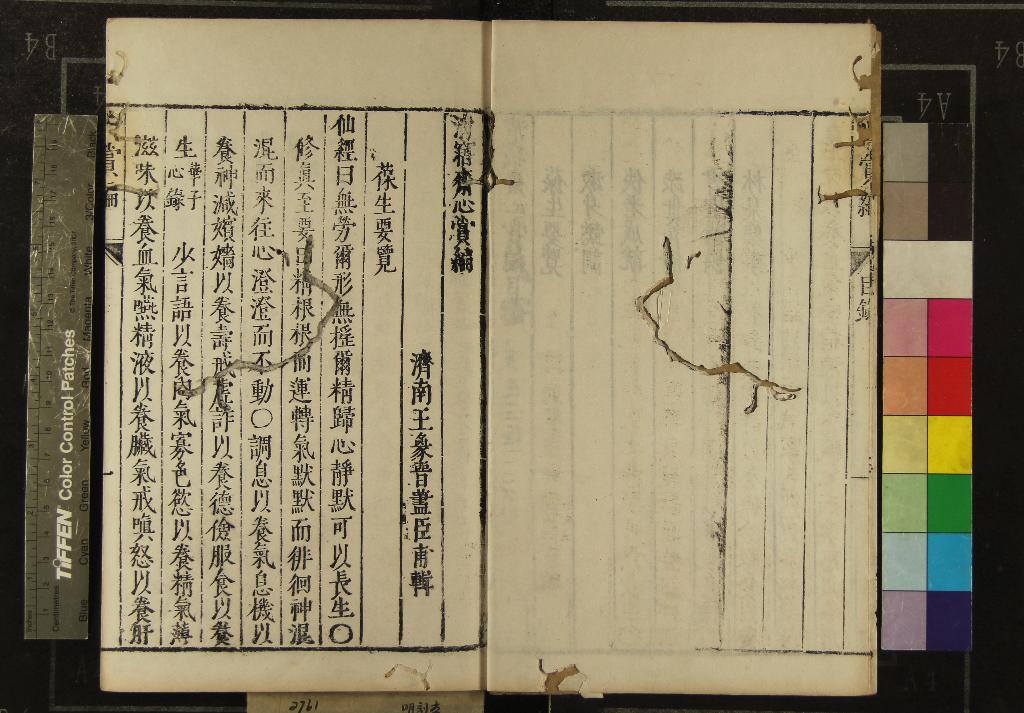 清寤齋心賞編
濟南王象晉藎臣甫輯
葆生要覽
仙經曰無勞爾形無搖爾精歸心靜默可以長生○
修眞至要曰精根根而運轉氣默默而徘徊神混
混而來往心澄澄而不動○調息以養氣息機以
養神減嬪嬙以養壽戒虛詐以養德儉服食以養
生華子心錄　少言語以養內氣寡色慾以養精氣薄
滋味以養血氣嚥精液以養臟氣戒嗔怒以養肝
目錄
一
TIFFEN Color Control Patches
Blue
Cyan
Green
Yellow
Red
Magenta
White
3/Color
Black
Inches
Centimetres
B4
A4
B4
2761